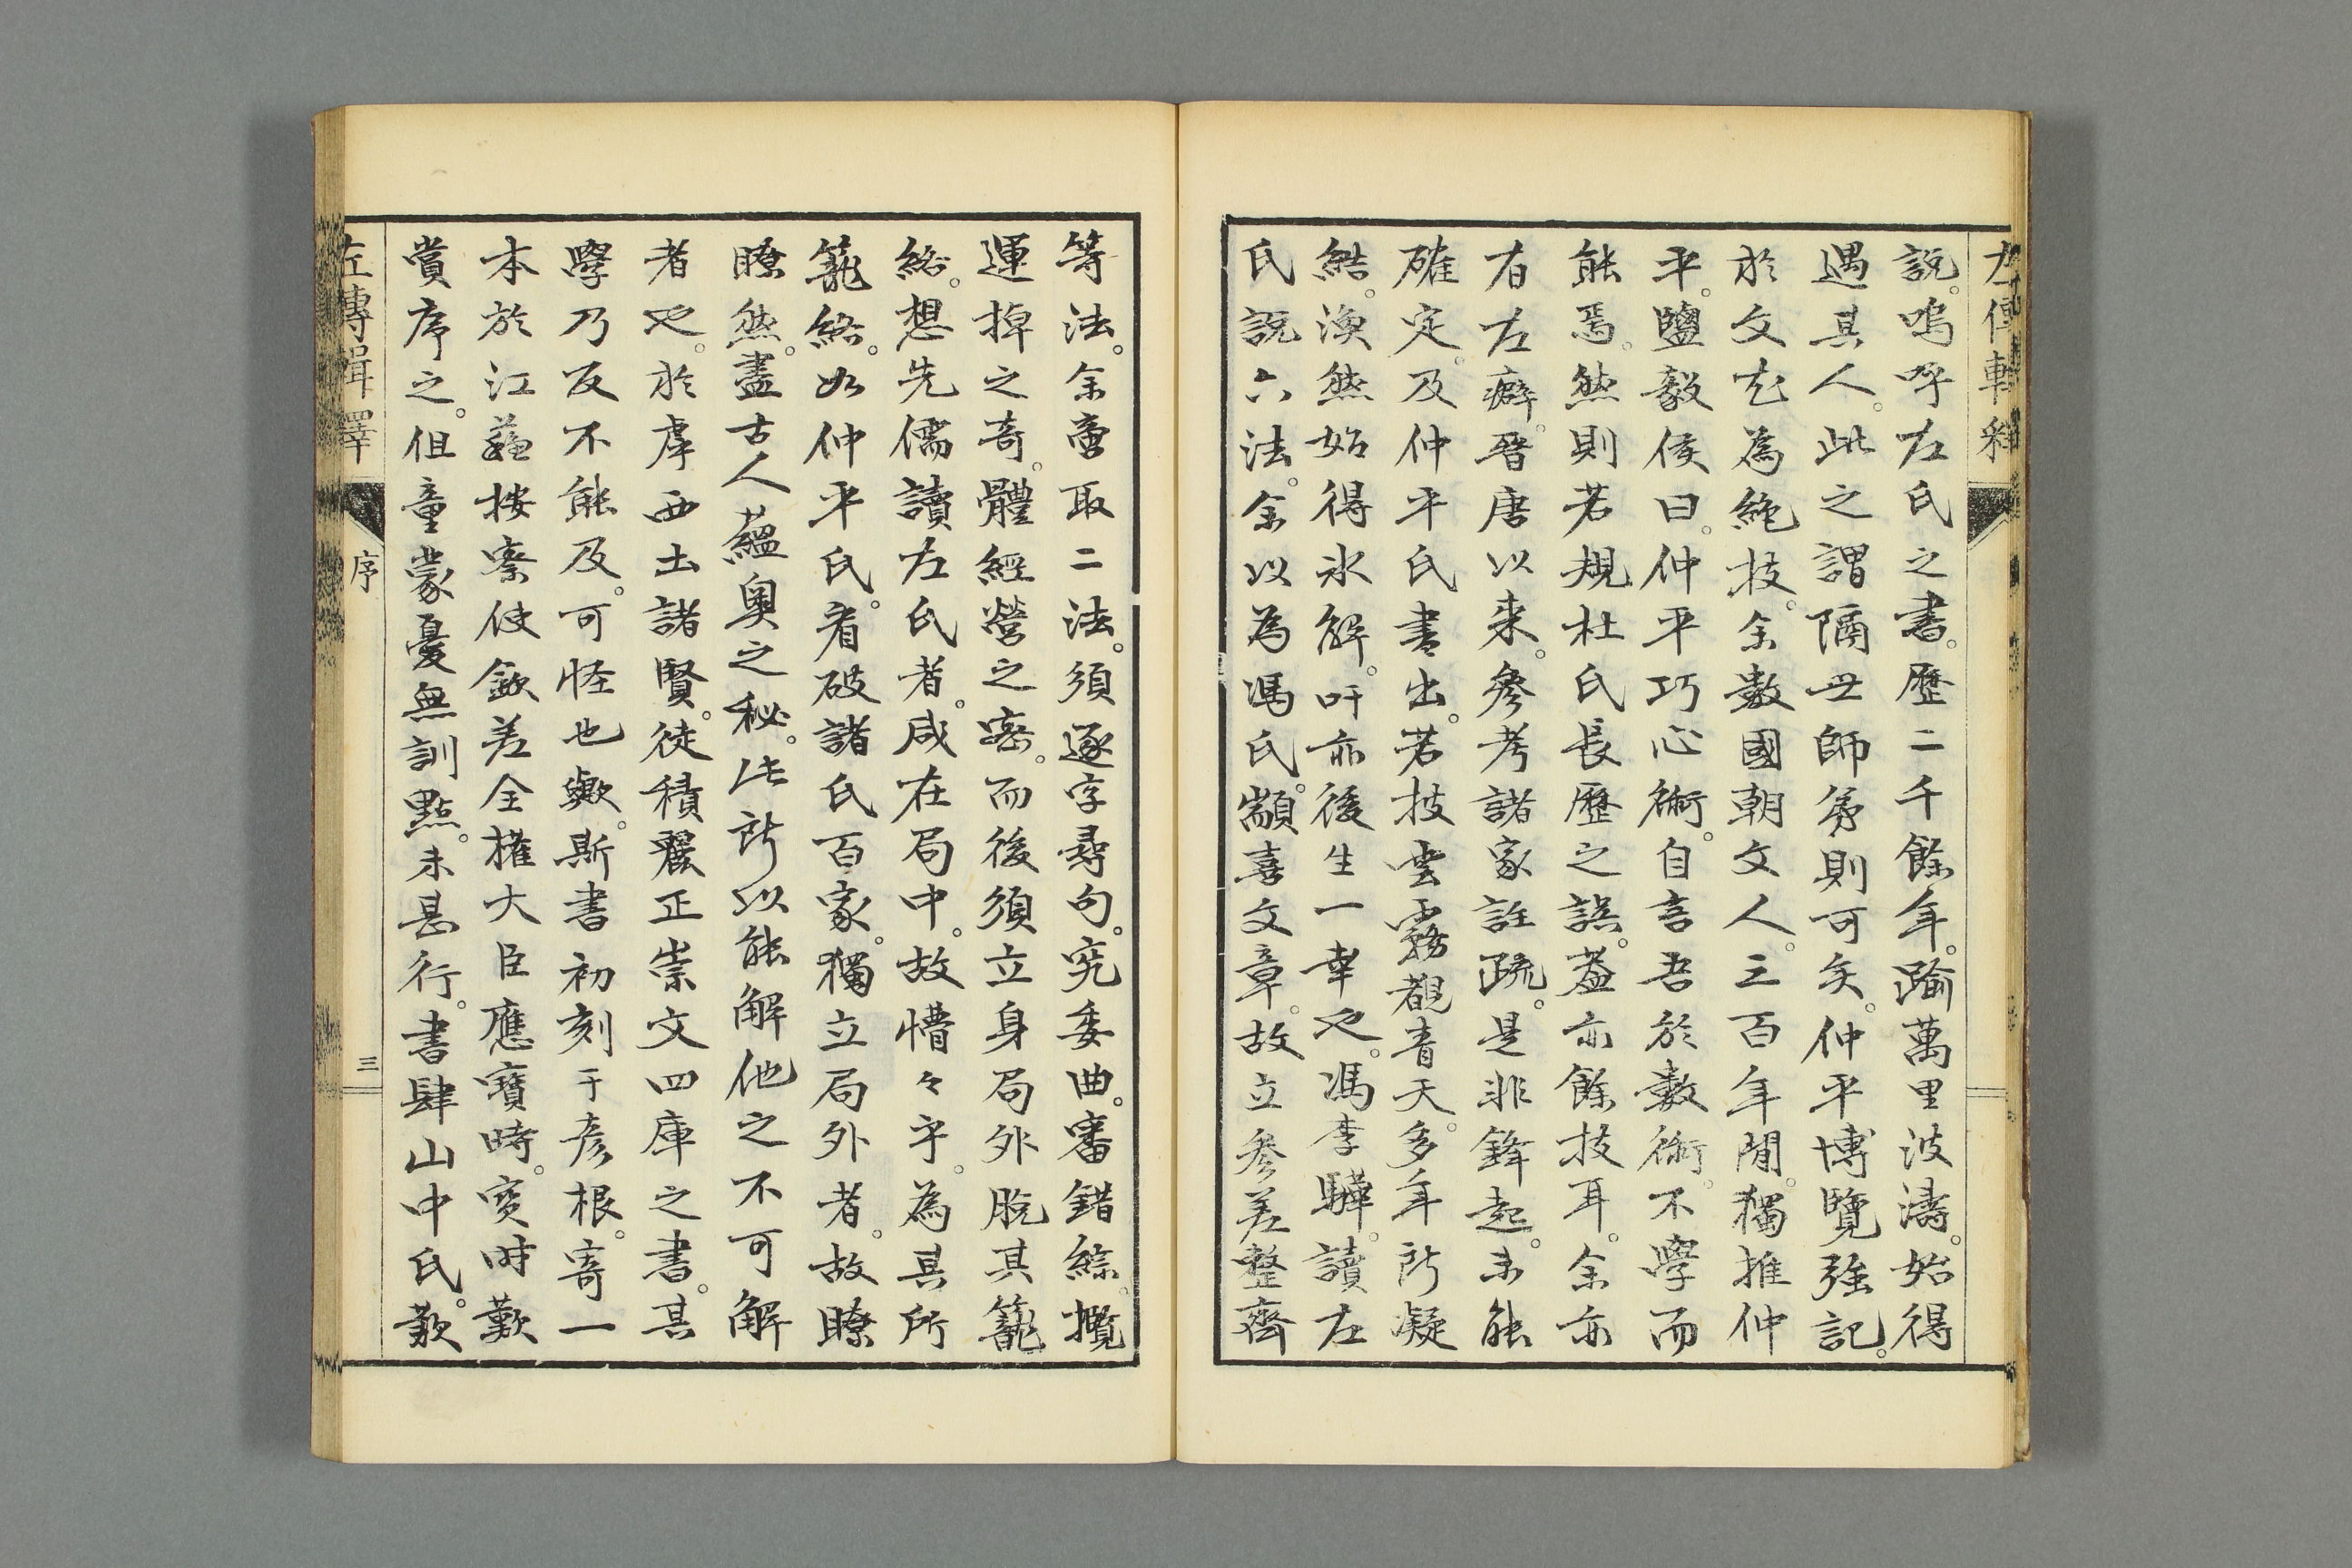 左傳輯釋
説。嗚呼左氏之書。歷二千餘年。踰萬里波濤。始得
遇其人。此之謂隔世師弟則可矣。仲平博覽強記。
於文尤為絶技。余數國朝文人。三百年間。獨推仲
平。鹽毅侯曰。仲平巧心術。自言吾於數術。不學而
能焉。然則若規杜氏長歷之誤。蓋亦餘技耳。余亦
有左癖。晉唐以来。參考諸家註疏。是非鋒起。未能
確定。及仲平氏書出。若披雲霧覩青天。多年所凝
結。渙然始得氷解。吁亦後生一幸也。馮李驊。讀左
氏説六法。余以為馮氏。顓喜文章。故立参差整齊
等法。余嘗取二法。須逐字尋句。究委曲。審錯綜。攬
運掉之奇。體經營之密。而後須立身局外。脱其籠
絡。想先儒讀左氏者。咸在局中。故懵々乎。為其所
籠絡。如仲平氏。看破諸氏百家。獨立局外者。故瞭
瞭然。盡古人蘊奥之秘。此所以能解他之不可解
者也。於虖西土諸賢。徒積麗正崇文四庫之書。其
學乃反不能及。可怪也歟。斯書初刻于彦根。寄一
本於江蘓按察使欽差全權大臣應寶時。寶時歎
賞序之。但童蒙憂無訓點。未甚行。書肆山中氏。歎
左傳輯釋
序
三